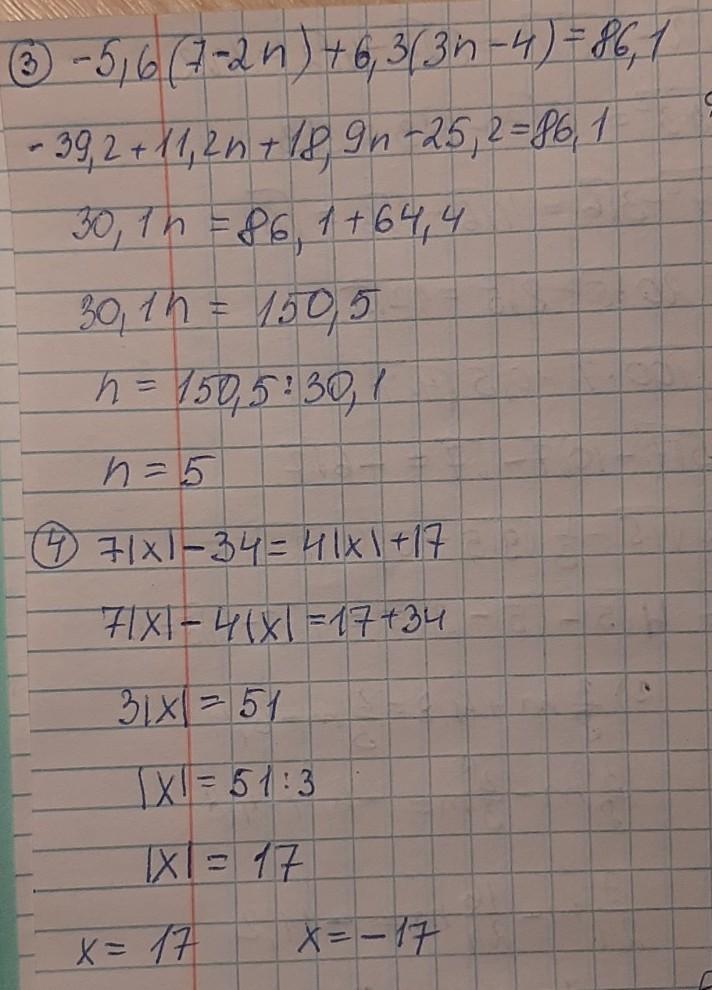 ③ -5,6(7-2n)+6,3(3n-4)=86,1
-39,2+11,2n+18,9n-25,2=86,1
30,1n=86,1+64,4
30,1n=150,5
n=150,5:30,1
n=5
④ 7|x|-34=4|x|+17
7|x|-4|x|=17+34
3|x|=51
|x|=51:3
|x|=17
x=17 x=-17